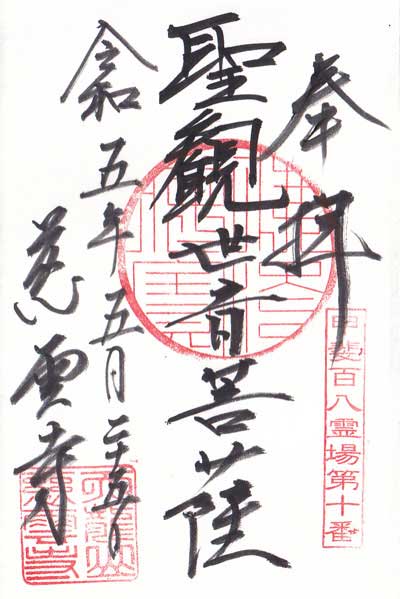 奉拝
甲斐百八霊場第十番
聖観世音菩薩
令和五年五月二十五日
慈雲寺